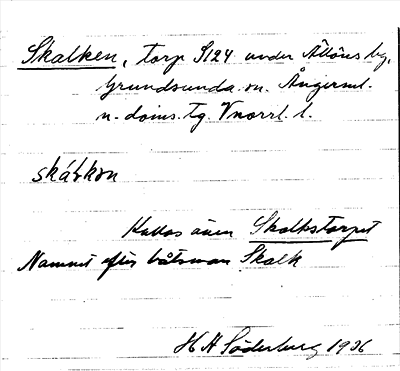 Skalken, torp S124 under Ållöns by,
Grundsunda sn. Ångerml.
n. doms.tg. Vnorrl. l.
skáłkon
Kallas även Skalkstorpet
Namnet efter båtsman Skalk
H H Söderberg 1926